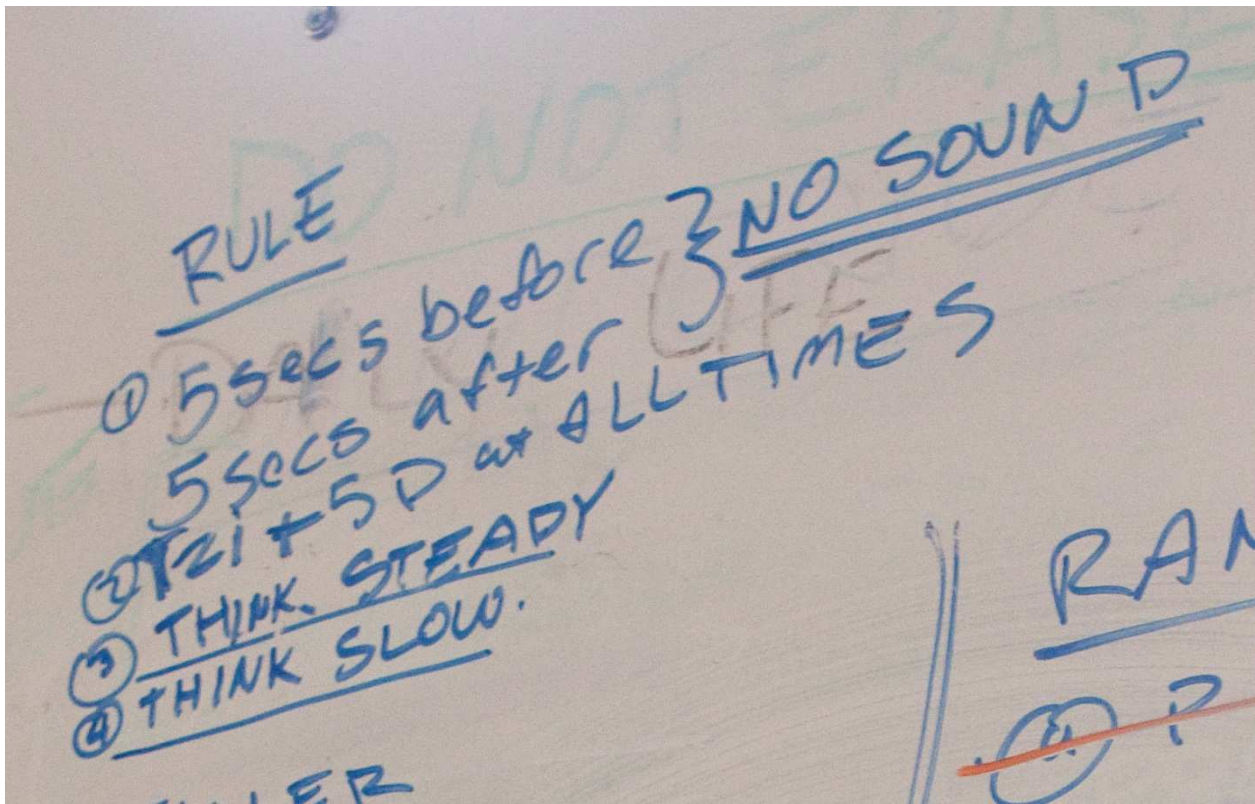 DO NOT ERASE
RULE
① 5 secs before } NO SOUND
5 secs after
② T2i + 5D at ALL TIMES
③ THINK STEADY
④ THINK SLOW.
DAILY LIFE